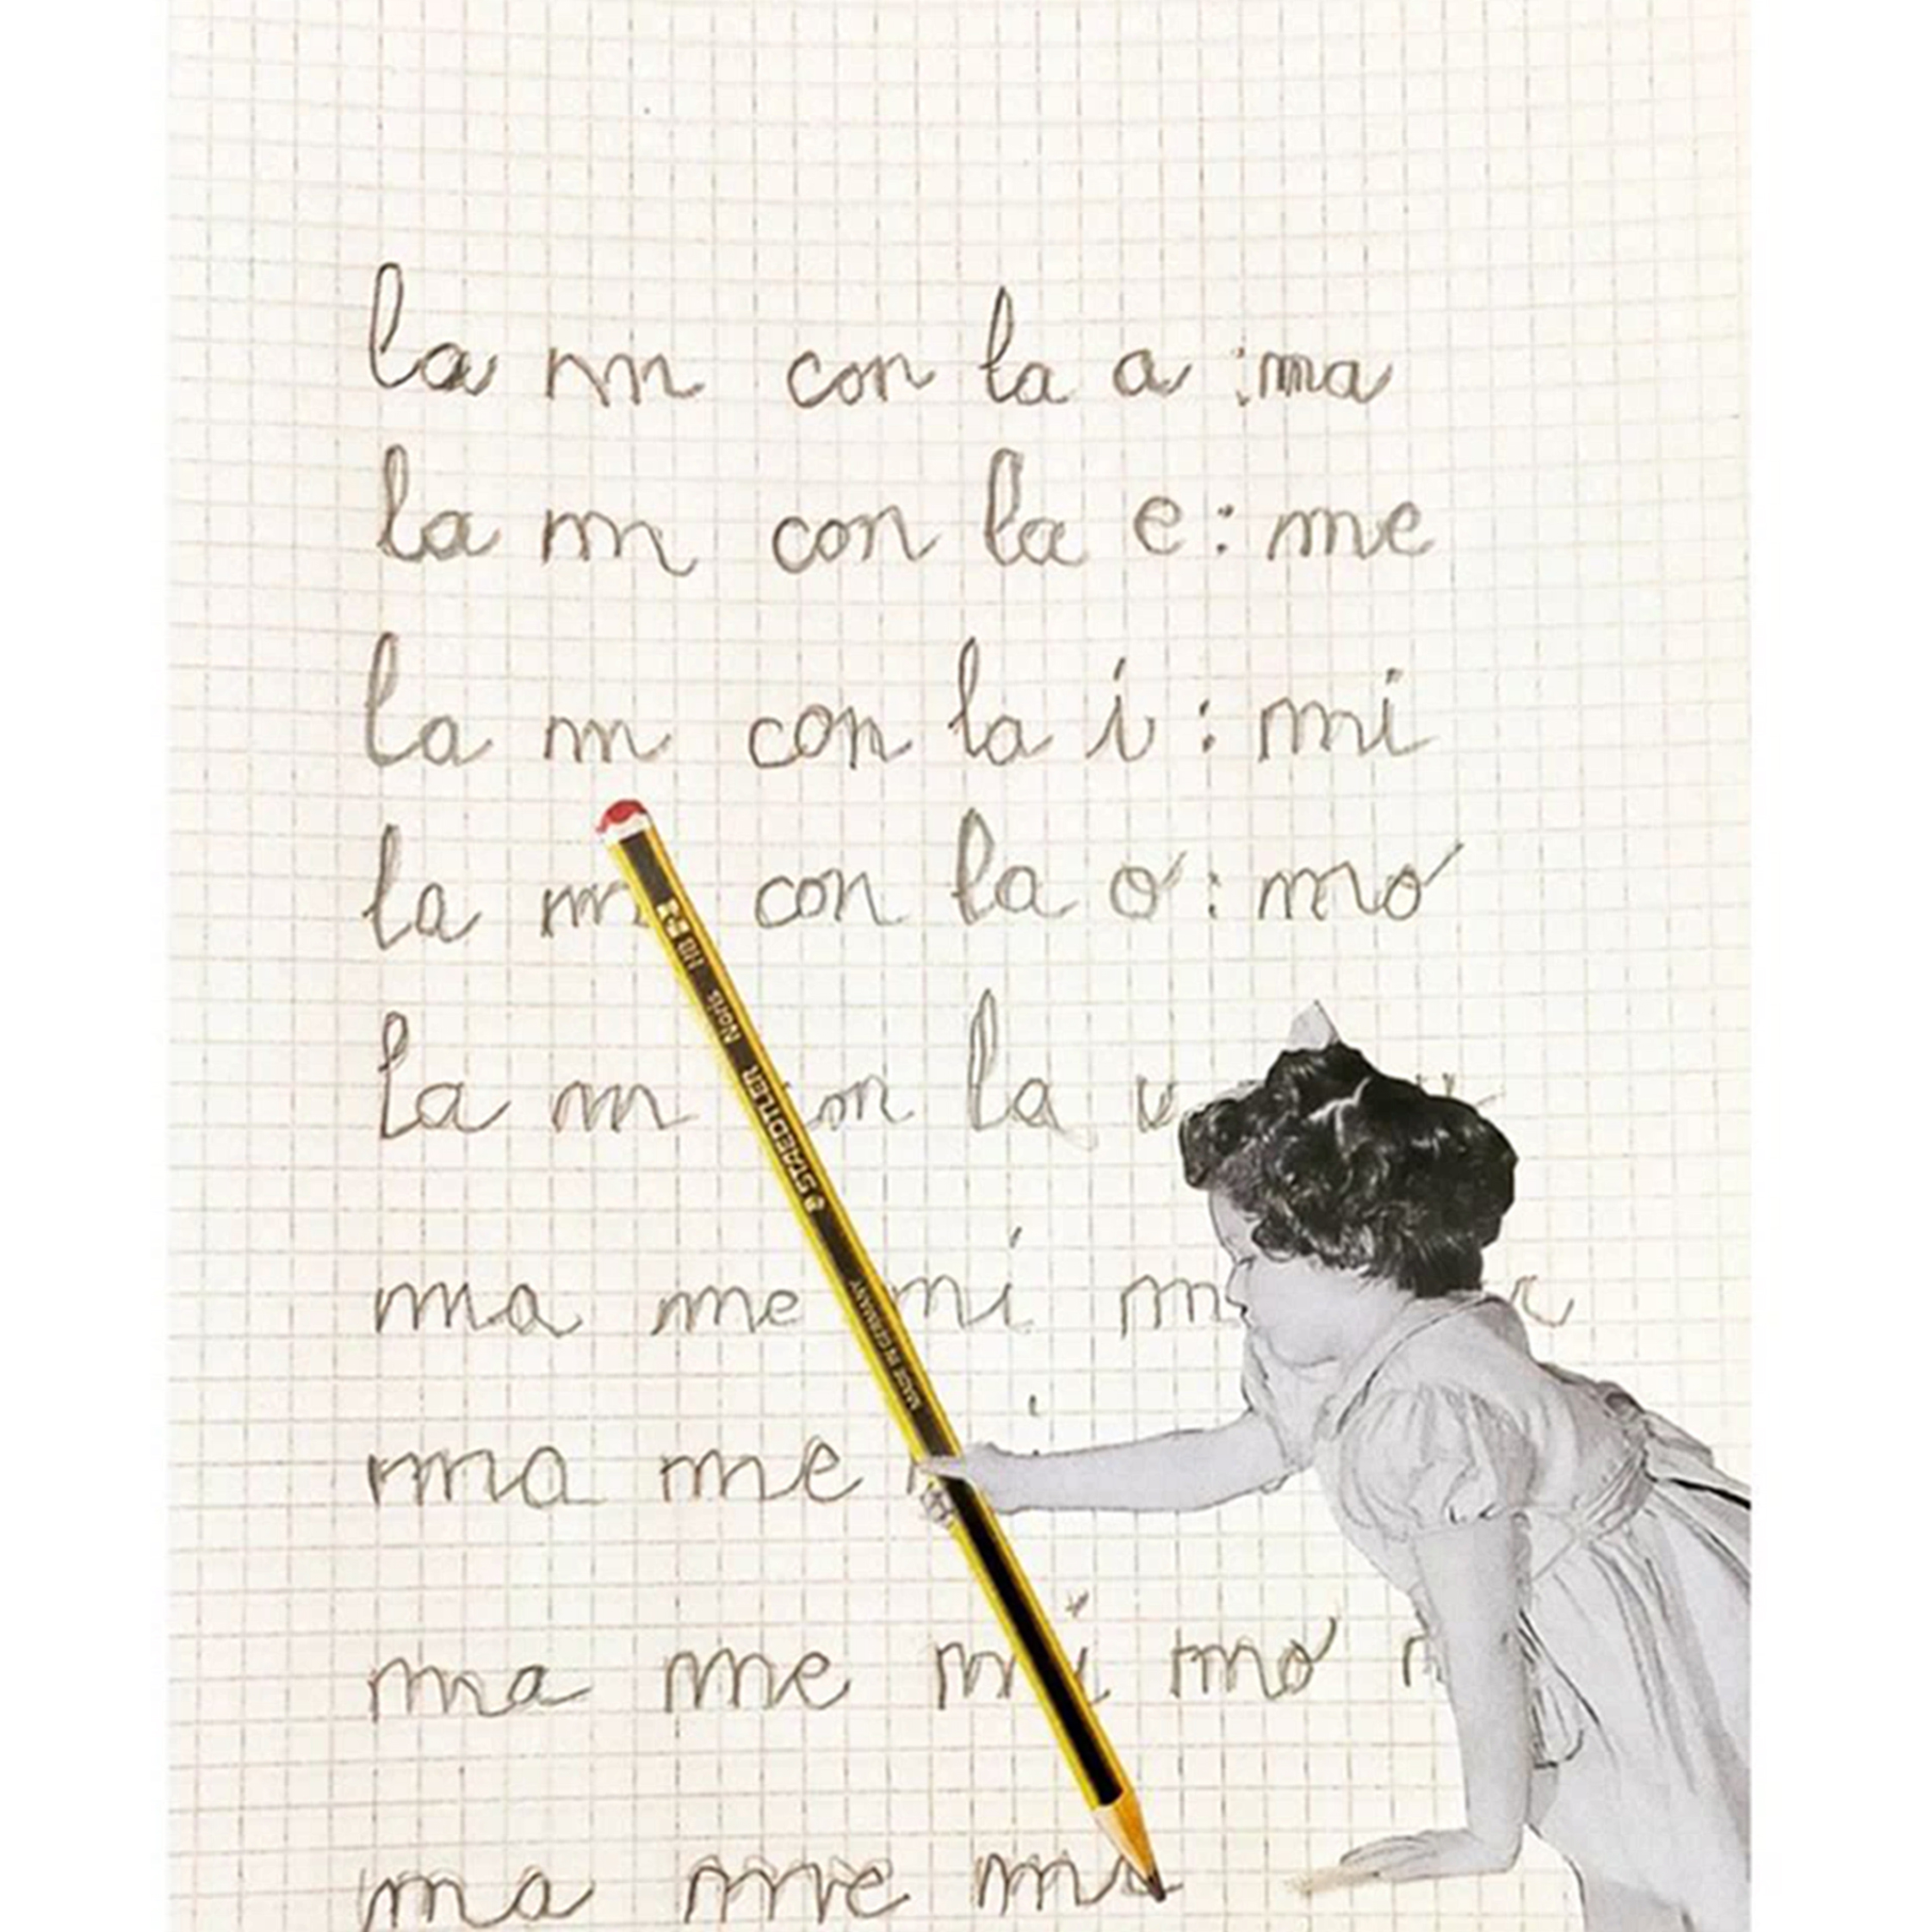 la m con la a :ma
la m con la e : me
la m con la i : mi
la m con la o : mo
la m la u
ma me mi
ma me
ma me mi mo
ma me mi
HB
Noris
STAEDTLER
MADE IN GERMANY